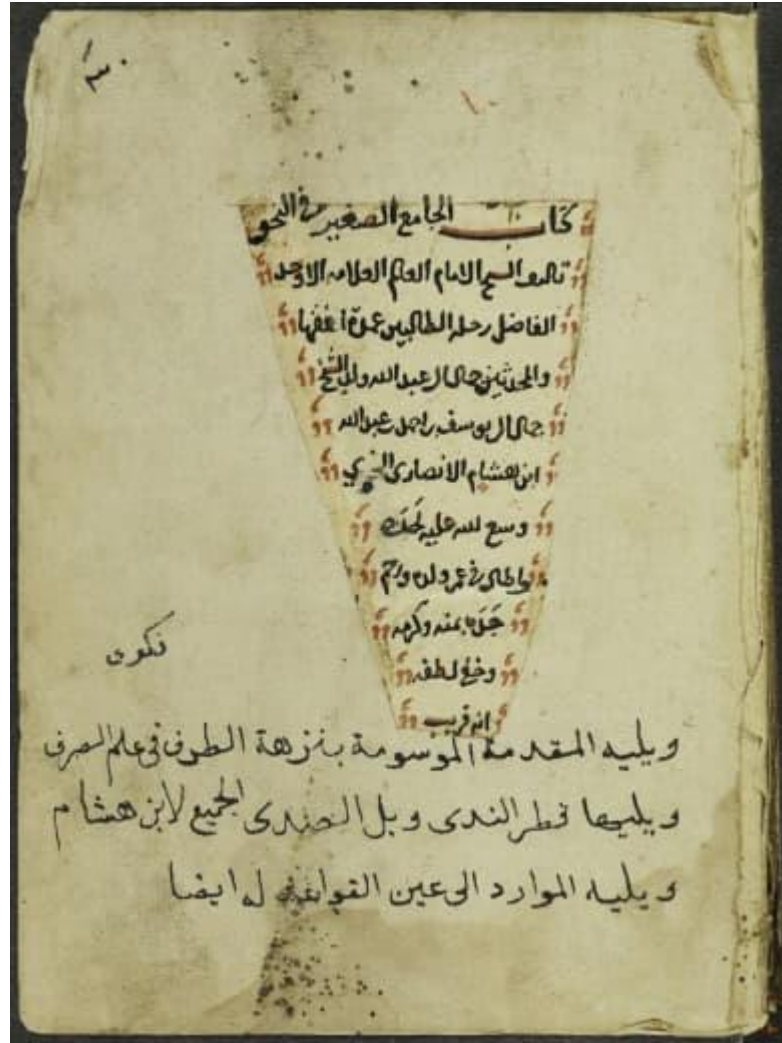 كتاب الجامع الصغير في النحو
تاليف الشيخ الامام العالم العلامه الاوحد
الفاضل رحله الطالبين عمدة
والمحدثين جمال عبد الله
جمال يوسف احمد عبد الله
ابن هشام الانصارى
وسع الله عليه
واطال في عمر
بمنه وكرمه
وخفي لطفه
انه قريب
ويليه المقدمة الموسومة بنزهة الطرف فى علم الصرف
ويليها قطر الندى وبل الصدى الجميع لابن هشام
ويليه الموارد الى عين القواعد له ايضا